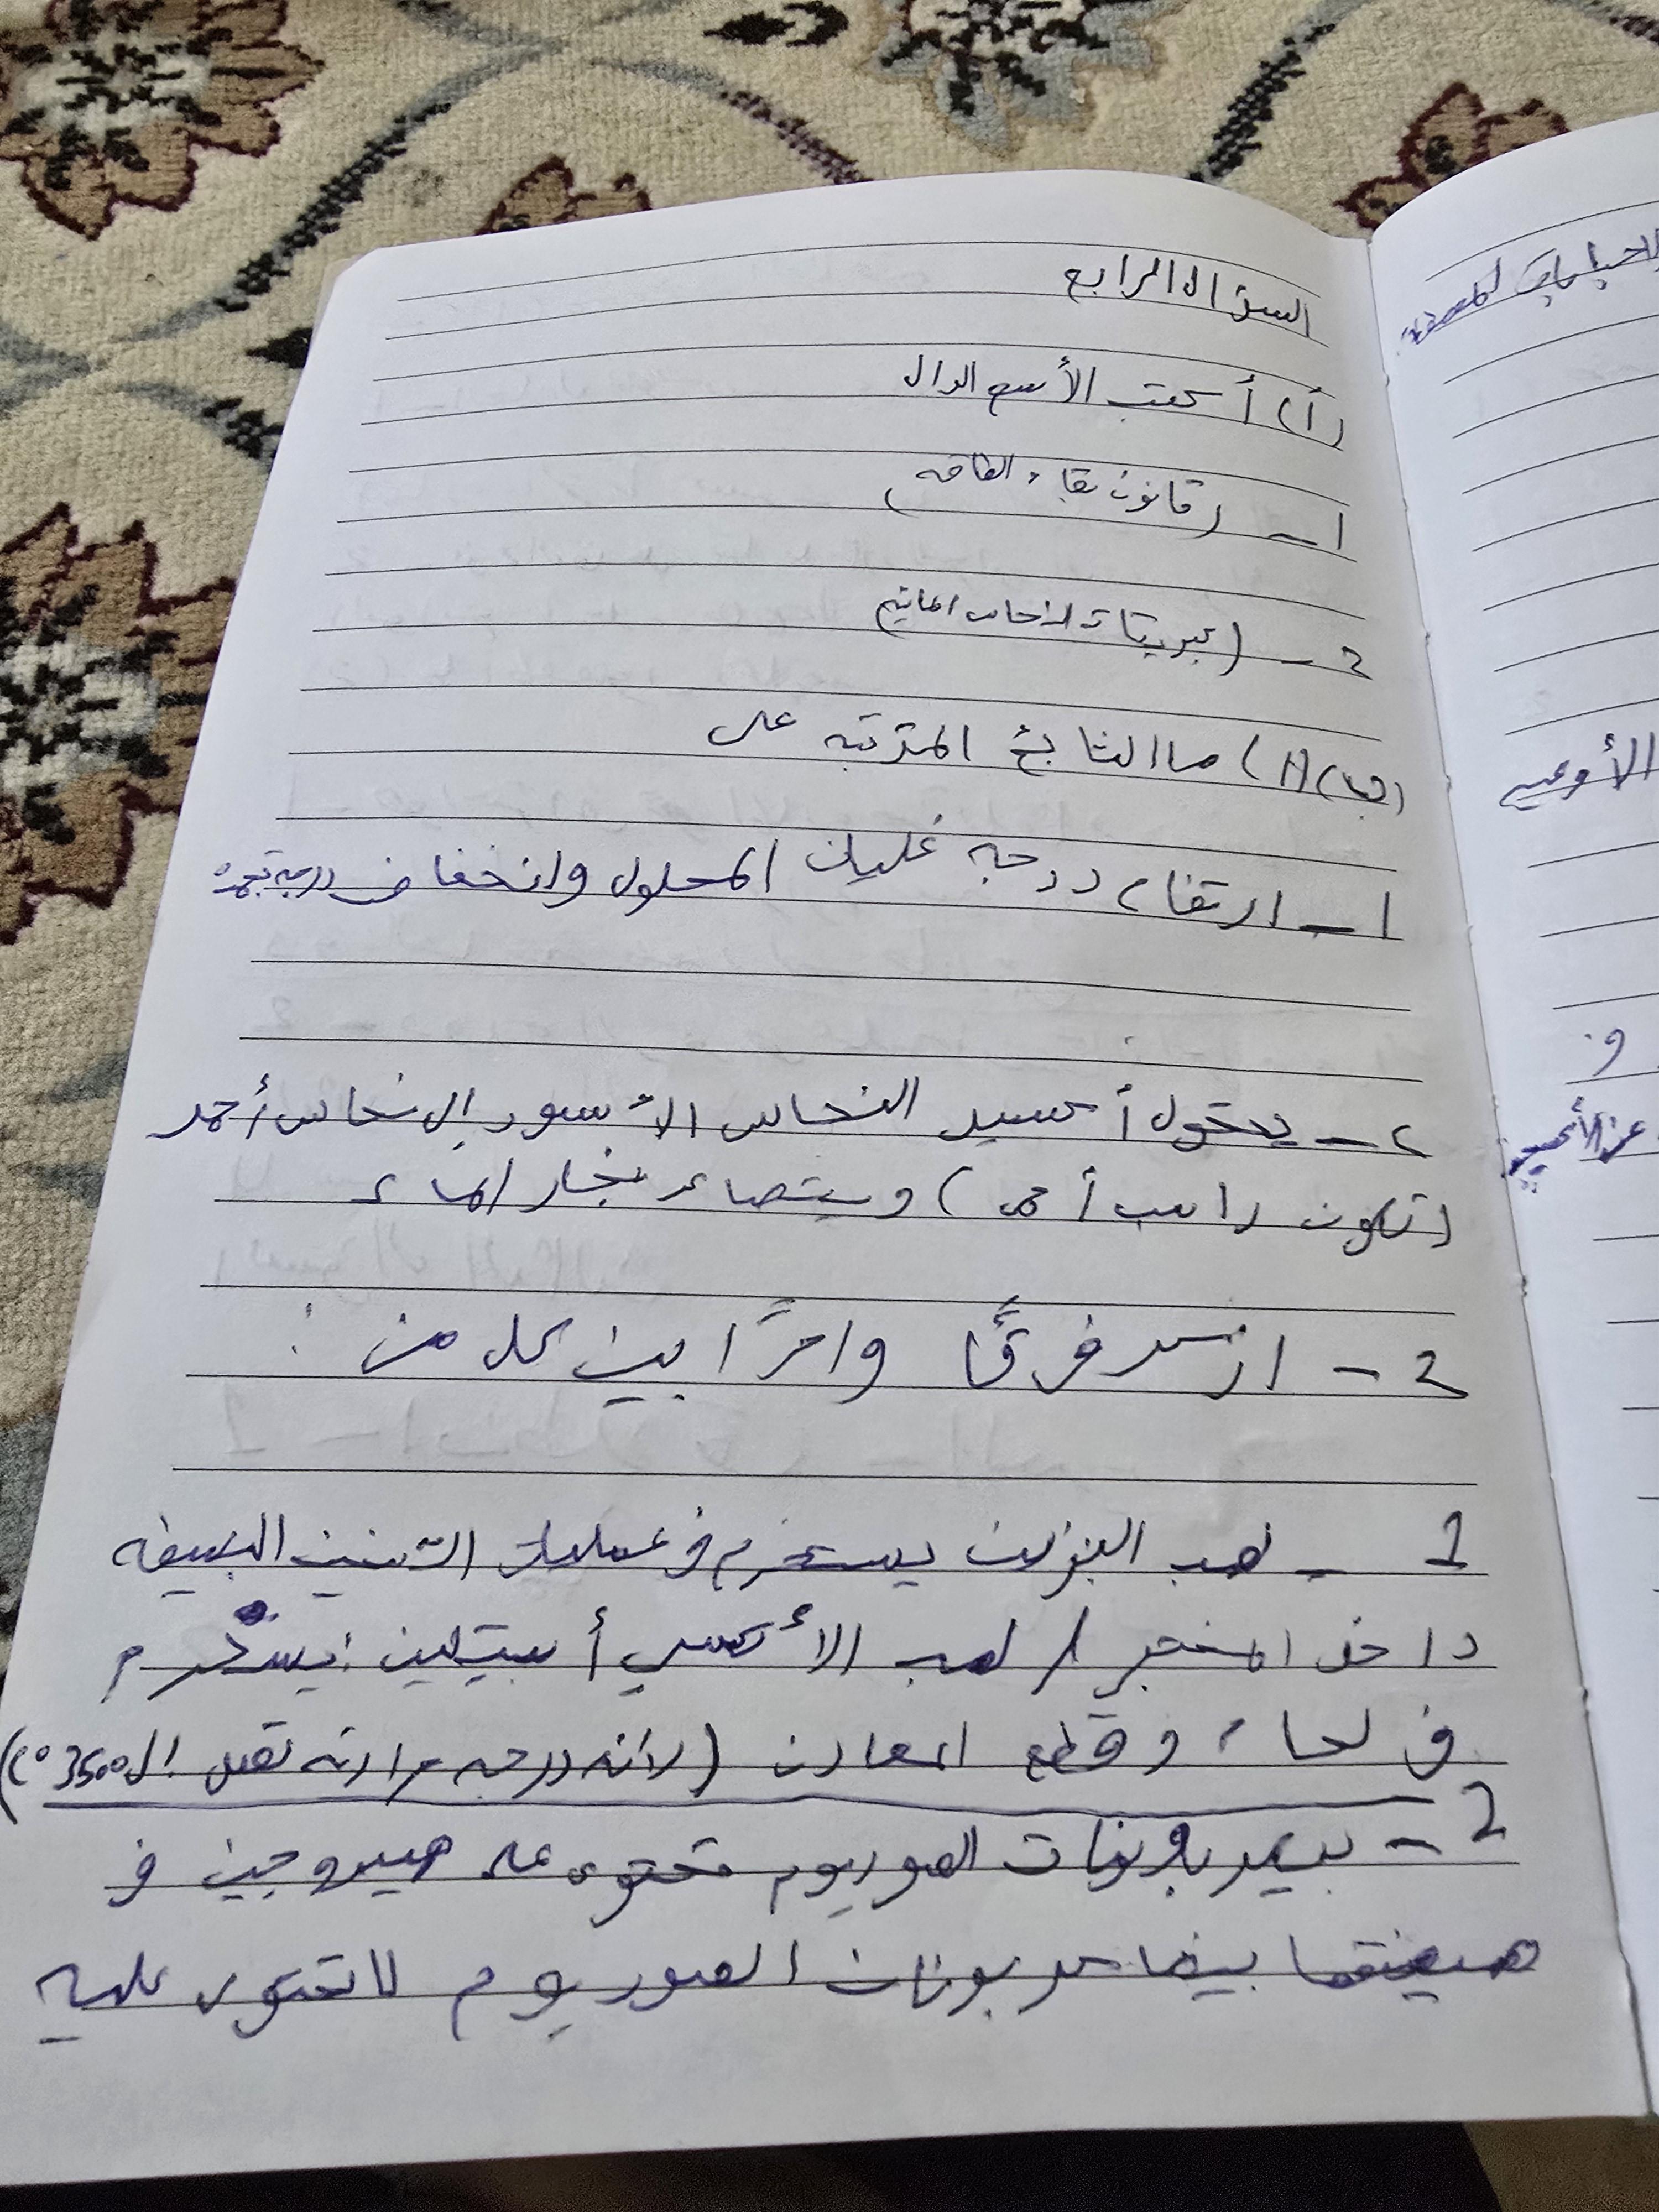 السؤال الرابع
(أ) أكتب الأسم الدال
1 - (قانون بقاء الطاقه)
2 - (كبريتات النحاس المائيه
(ب) (1) ما النتائج المترتبه على
1 - ارتفاع درجه غليان المحلول وانخفاض درجة تجمده
2 - يتحول أكسيد النحاس الأسود إلى نحاس أحمر
(تكون راسب أحمر) ويتصاعد بخار الماء
2 - اذكر فرقًا واحدًا بين كل من :
1 - لهب البنزن يستخدم في عمليات التسخين البسيطه
داخل المختبر / لهب الأكسي أسيتيلين : يستخدم
في لحاء وقطع المعادن (لأنه درجه حرارته تصل إلى 3500°)
2 - بيكربونات الصوديوم تحتوى على هيدروجين في
صيغتها بينما كربونات الصوديوم لا تحتوى عليه
الأوعيه
في